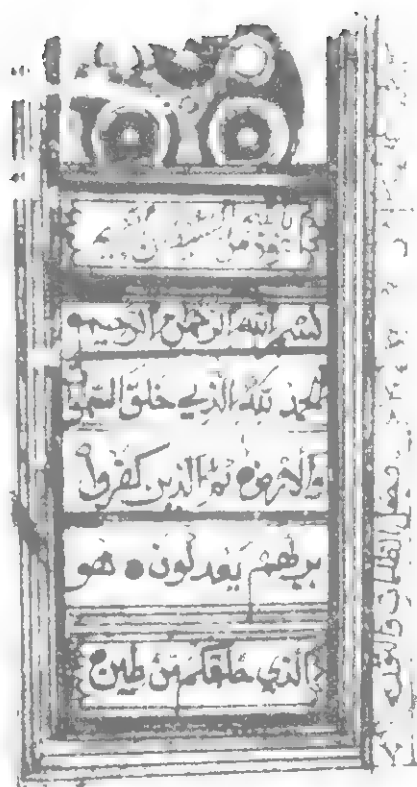 بالله
بسم الله الرحمن الرحيم
الحمد لله الذي خلق السموا
والارض ثم الذين كفروا
بربهم يعدلون هو
الذي خلقكم من طين
وجعل الظلمات والنور